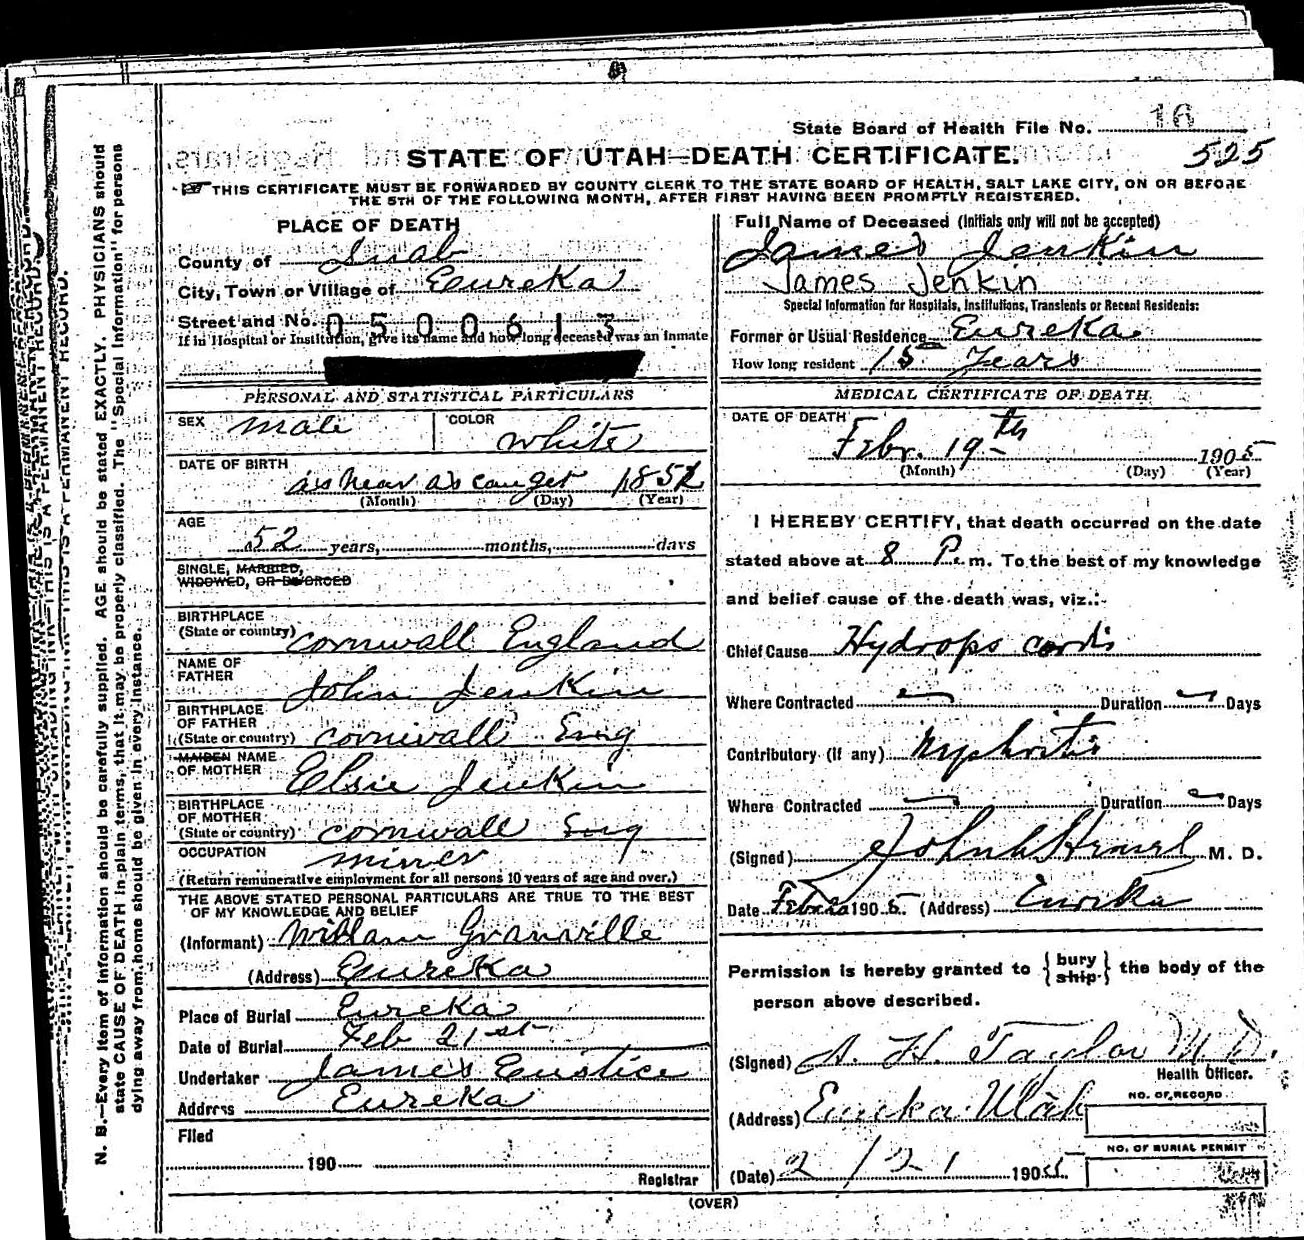 State Board of Health File No. 16
525
STATE OF UTAH—DEATH CERTIFICATE.
THIS CERTIFICATE MUST BE FORWARDED BY COUNTY CLERK TO THE STATE BOARD OF HEALTH, SALT LAKE CITY, ON OR BEFORE
THE 5TH OF THE FOLLOWING MONTH, AFTER FIRST HAVING BEEN PROMPTLY REGISTERED.
PLACE OF DEATH
County of Juab
City, Town or Village of Eureka
Street and No. 0500613
If in Hospital or Institution, give its name and how long deceased was an inmate
PERSONAL AND STATISTICAL PARTICULARS
SEX male COLOR white
DATE OF BIRTH
as near as can get 1852
(Month) (Day) (Year)
AGE
52 years, months, days
SINGLE, MARRIED,
WIDOWED, OR DIVORCED
BIRTHPLACE
(State or country) cornwall England
NAME OF
FATHER John Jenkin
BIRTHPLACE
OF FATHER
(State or country) cornwall Eng
MAIDEN NAME
OF MOTHER Elsie Jenkin
BIRTHPLACE
OF MOTHER
(State or country) cornwall Eng
OCCUPATION minner
(Return remunerative employment for all persons 10 years of age and over.)
THE ABOVE STATED PERSONAL PARTICULARS ARE TRUE TO THE BEST
OF MY KNOWLEDGE AND BELIEF
(Informant) William Granville
(Address) Eureka
Place of Burial Eureka
Date of Burial Feb 21st
Undertaker James Eustice
Address Eureka
Filed
190
Registrar
Full Name of Deceased (Initials only will not be accepted)
James Jenkin
James Jenkin
Special Information for Hospitals, Institutions, Transients or Recent Residents:
Former or Usual Residence Eureka
How long resident 15 Years
MEDICAL CERTIFICATE OF DEATH
DATE OF DEATH
Febr. 19th 1905
(Month) (Day) (Year)
I HEREBY CERTIFY, that death occurred on the date
stated above at 8 P. m. To the best of my knowledge
and belief cause of the death was, viz.:
Chief Cause Hydrops cordis
Where Contracted Duration Days
Contributory (if any) Nephritis
Where Contracted Duration Days
(Signed) M. D.
Date 1905. (Address) Eureka
Permission is hereby granted to { bury
ship } the body of the
person above described.
(Signed) A. H. Taylor M.D.
Health Officer.
(Address) Eureka Utah
NO. OF RECORD
NO. OF BURIAL PERMIT
(Date) 2/21 1905
(OVER)
N. B.—Every item of information should be carefully supplied. AGE should be stated EXACTLY. PHYSICIANS should
state CAUSE OF DEATH in plain terms, that it may be properly classified. The "Special Information" for persons
dying away from home should be given in every instance.